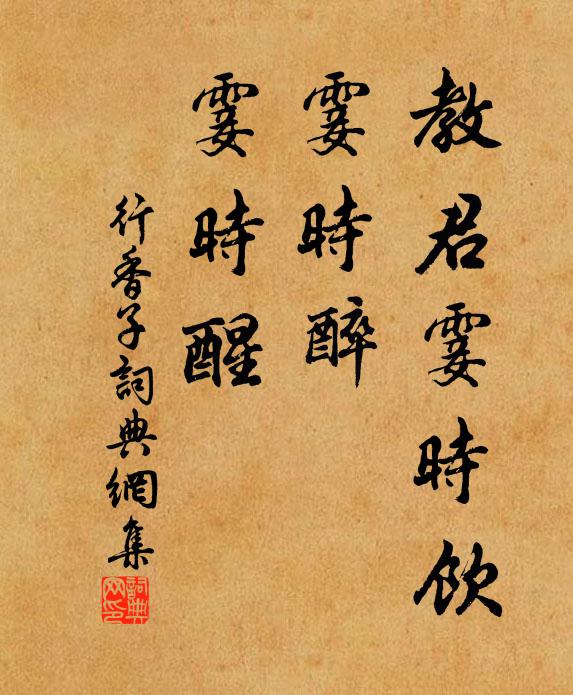 教君霎時飲
霎時醉
霎時醒
行香子詞典網集
詞典
网印